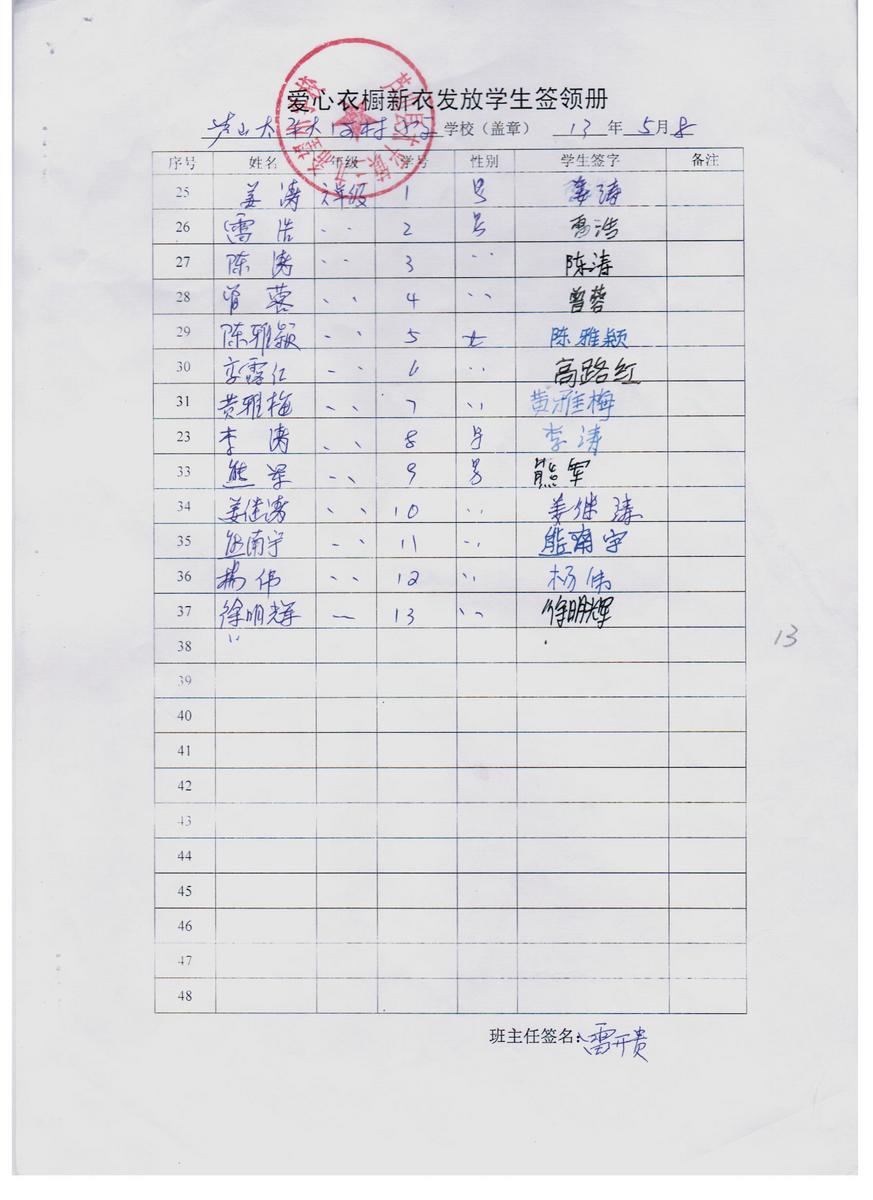 爱心衣橱新衣发放学生签领册
芦山太平 村小学 学校（盖章） 13 年 5 月 8
序号 姓名 年级 学号 性别 学生签字 备注
25 姜涛 年级 1 男 姜涛
26 雷浩 〃 2 男 雷浩
27 陈涛 〃 3 〃 陈涛
28 曾蓉 〃 4 〃 曾蓉
29 陈雅颖 〃 5 女 陈雅颖
30 〃 6 〃 高路红
31 黄雅梅 〃 7 〃 黄雅梅
23 李涛 〃 8 男 李涛
33 熊军 〃 9 男 熊军
34 姜继涛 〃 10 〃 姜继涛
35 熊南宇 〃 11 〃 熊南宇
36 杨伟 〃 12 〃 杨伟
37 徐明辉 〃 13 〃 徐明辉
13
38
39
40
41
42
43
44
45
46
47
48
班主任签名：雷开贵